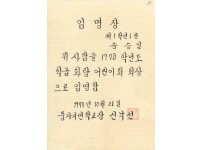 임명장
제1학년1반
송승일
위 사람을 1978 학년도
학급 회장 어린이회 회장
으로 임명함
1978년 10월 21일
국민학교장 신